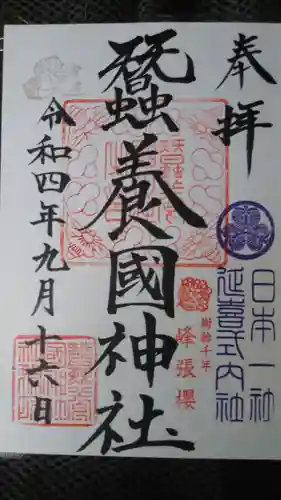 奉拝
日本一社
延喜式内社
樹齢千年
峰張櫻
蠶養國神社
令和四年九月十六日